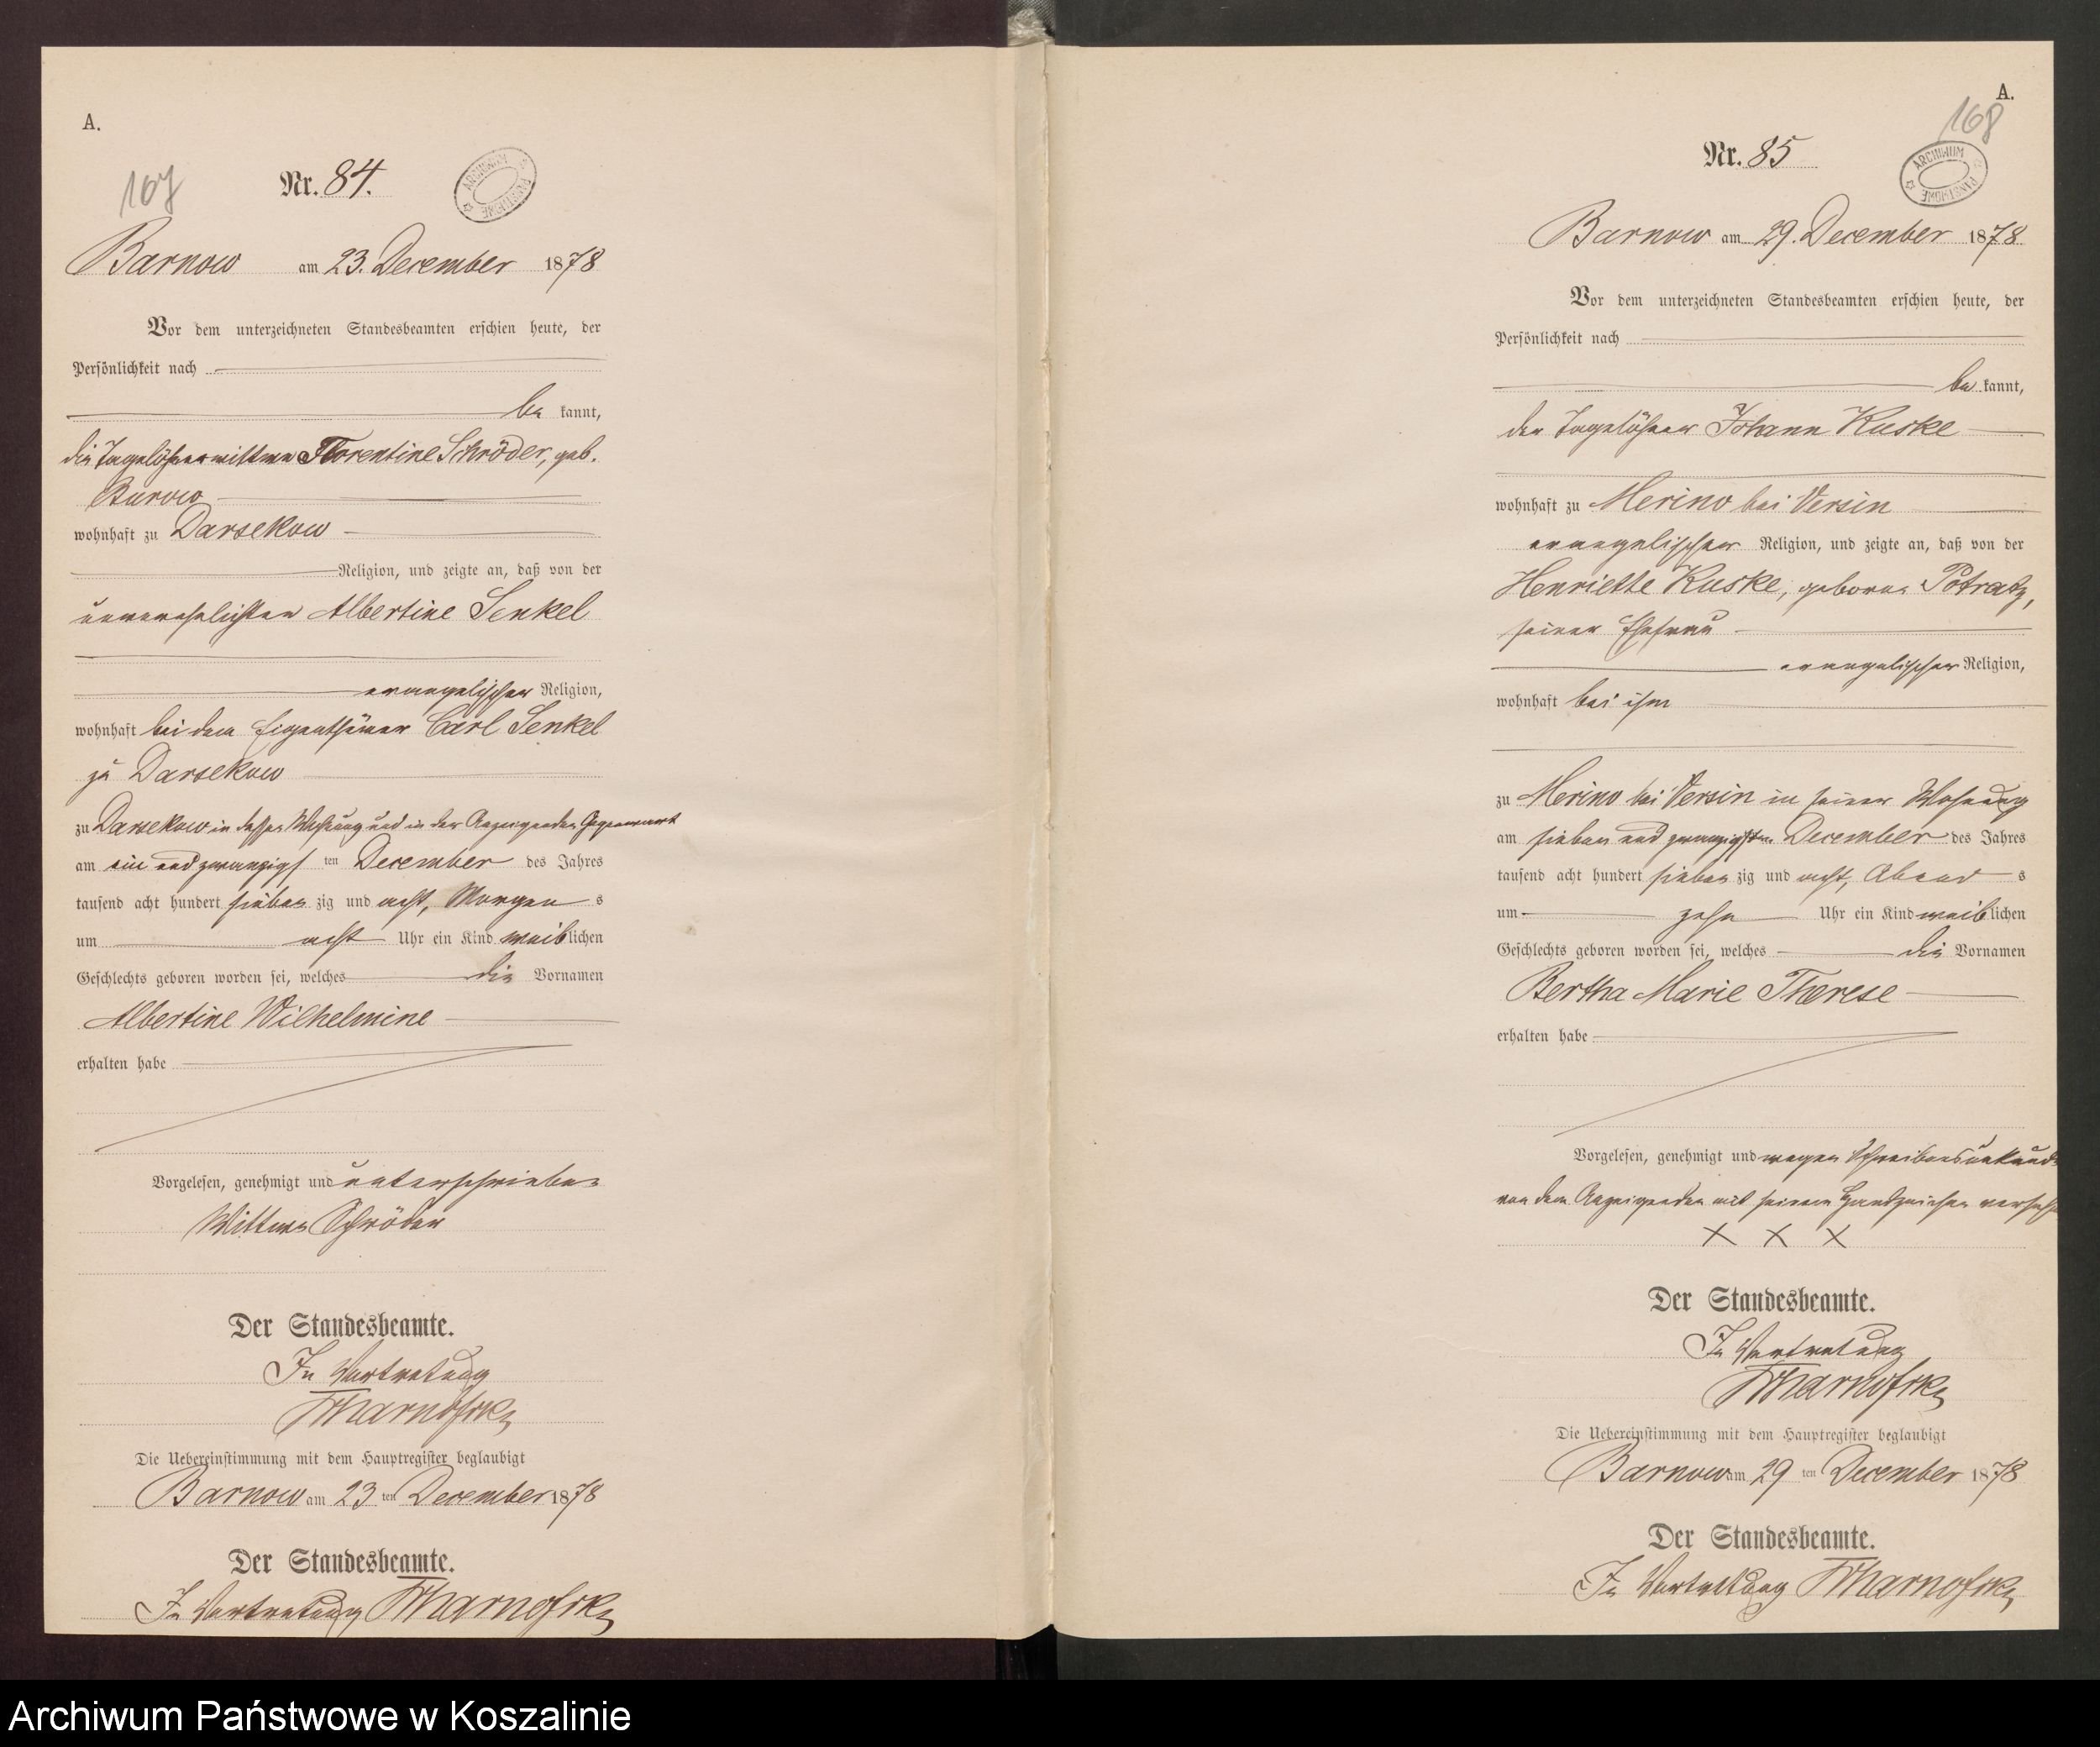 A.
107
Nr. 84.
ARCHIWUM PAŃSTWOWE
Barnow am 23. December 1878
Vor dem unterzeichneten Standesbeamten erschien heute, der
Persönlichkeit nach
be kannt,
die Tagelöhnerwittwe Florentine Schröder, geb.
Burow
wohnhaft zu Darsekow
Religion, und zeigte an, daß von der
unverehelichten Albertine Senkel
evangelischer Religion,
wohnhaft bei dem Eigenthümer Carl Senkel
zu Darsekow
zu Darsekow in dessen Wohnung und in der Anzeigenden Gegenwart
am ein und zwanzigs ten December des Jahres
tausend acht hundert sieben zig und acht, Morgen s
um acht Uhr ein Kind weiblichen
Geschlechts geboren worden sei, welches die Vornamen
Albertine Wilhelmine
erhalten habe
Vorgelesen, genehmigt und unterschrieben
Wittwe Schröder
Der Standesbeamte.
In Vertretung
Die Uebereinstimmung mit dem Hauptregister beglaubigt
Barnow am 23 ten December 1878
Der Standesbeamte.
In Vertretung
A.
168
Nr. 85
ARCHIWUM PAŃSTWOWE
Barnow am 29. December 1878
Vor dem unterzeichneten Standesbeamten erschien heute, der
Persönlichkeit nach
be kannt,
der Tagelöhner Johann Kuske
wohnhaft zu Merino bei Versin
evangelischer Religion, und zeigte an, daß von der
Henriette Kuske, geborne Potratz,
seiner Ehefrau
evangelischer Religion,
wohnhaft bei ihm
zu Merino bei Versin in seiner Wohnung
am sieben und zwanzigsten December des Jahres
tausend acht hundert sieben zig und acht, Abend s
um zehn Uhr ein Kind weiblichen
Geschlechts geboren worden sei, welches die Vornamen
Bertha Marie Therese
erhalten habe
Vorgelesen, genehmigt und wegen Schreibensunkunde
von dem Anzeigenden mit seinem Handzeichen versehen
X X X
Der Standesbeamte.
In Vertretung
Die Uebereinstimmung mit dem Hauptregister beglaubigt
Barnow am 29 ten December 1878
Der Standesbeamte.
In Vertretung
Archiwum Państwowe w Koszalinie